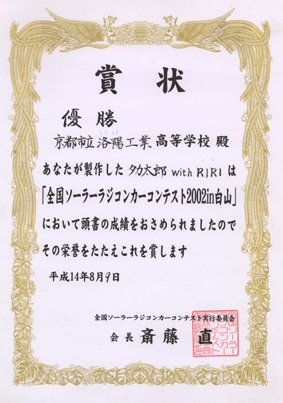 賞状
優勝
京都市立洛陽工業高等学校 殿
あなたが製作した 夕力太郎 with RIRI は
「全国ソーラーラジコンカーコンテスト2002in白山」
において頭書の成績をおさめられましたので
その栄誉をたたえこれを賞します
平成14年8月9日
全国ソーラーラジコンカーコンテスト実行委員会
会長 斎藤 直